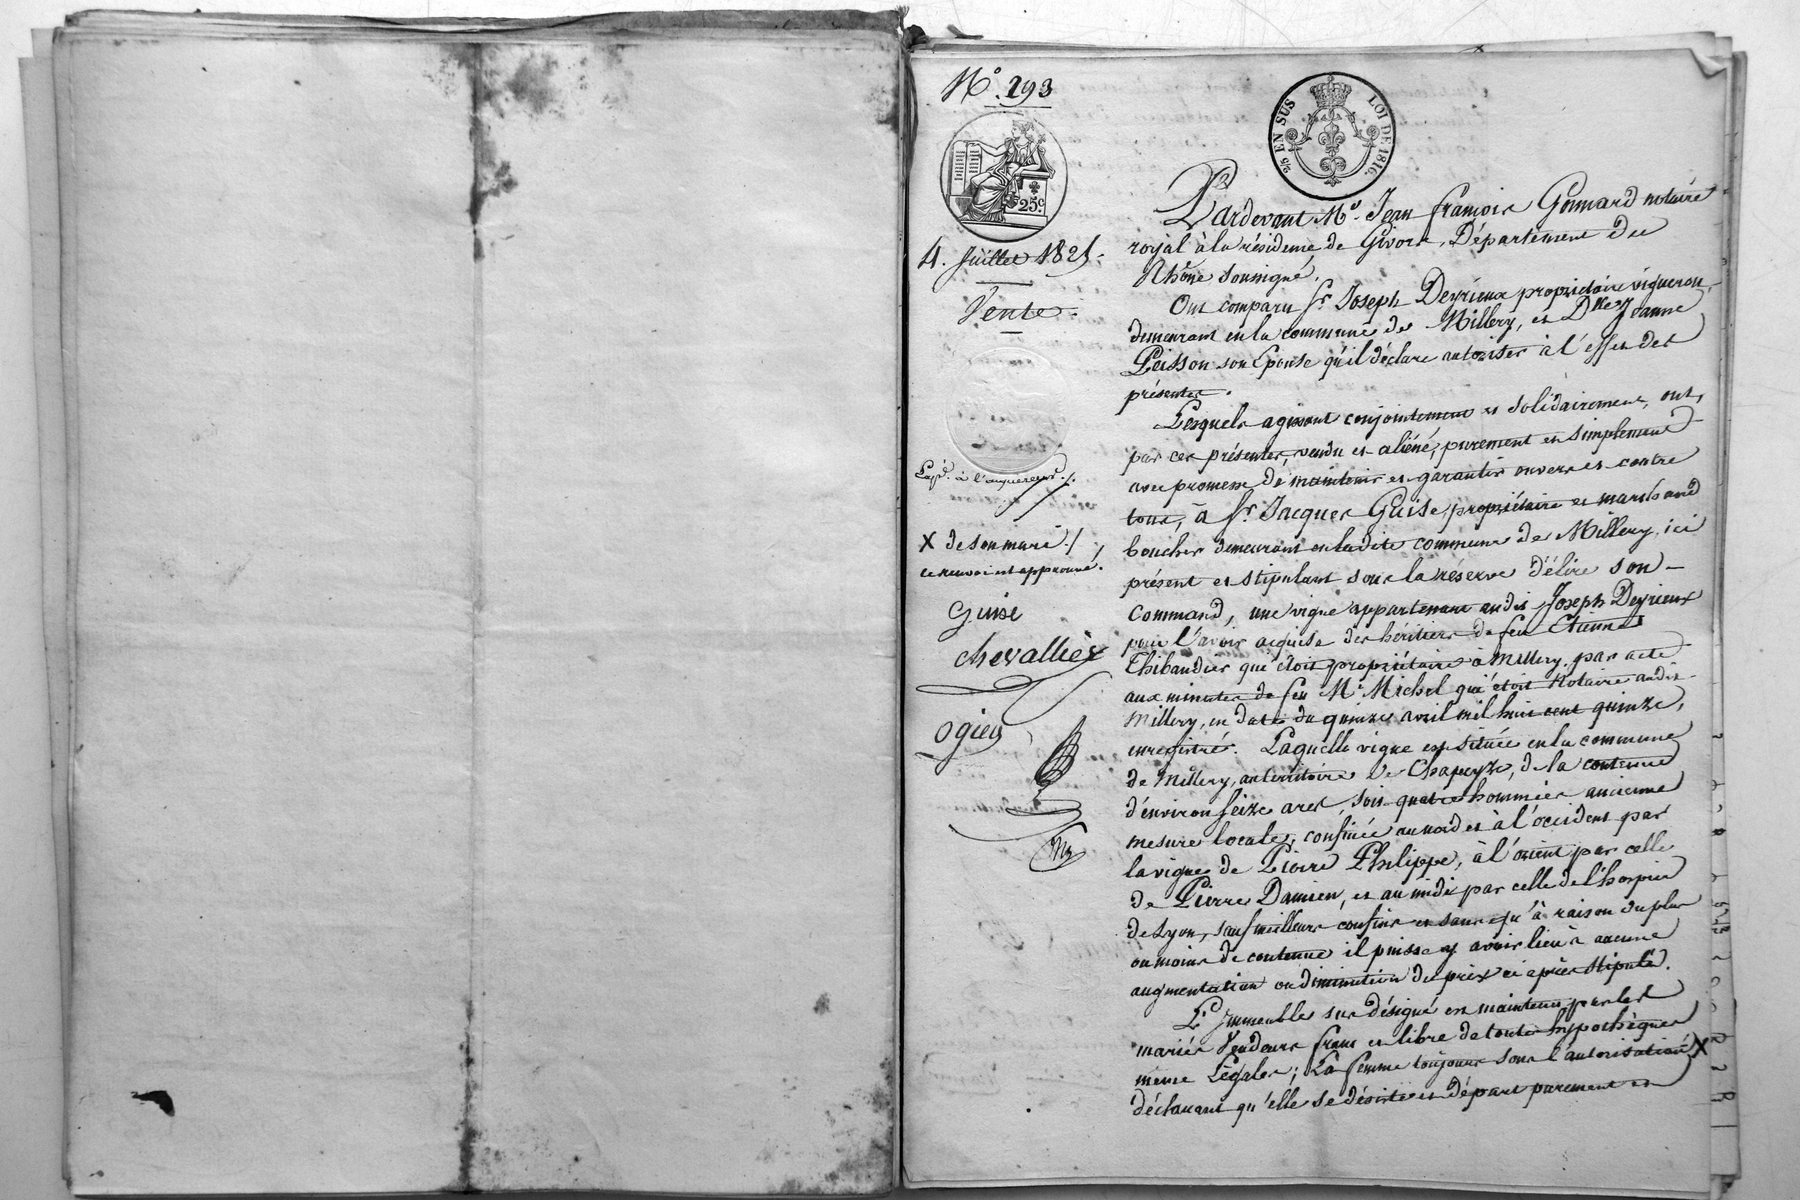 N.º 293
25.c
2/5 EN SUS
LOI DE 1816.
4. Juillet 1825.
Vente.
Exp.é à l'acquereur ./.
X de son mari ./.
ce renvoi est approuvé.
Guise
Chevallier
Ogier
Pardevant M.e Jean françois Gonnard notaire
royal à la résidence de Givors, Département du
Rhône soussigné.
Ont comparu S.r Joseph Deyrieux propriétaire vigneron
demeurant en la commune de Millery, et D.lle Jeanne
Peisson son Epouse qu'il déclare autoriser à l'effet des
présentes.
Lesquels agissant conjointement et solidairement, ont,
par ces présentes, vendu et aliéné, purement et simplement
avec promesse de maintenir et garantir envers et contre
tous, à S.r Jacques Guise, propriétaire et marchand
boucher demeurant en ladite commune de Millery, ici
présent et stipulant sous la réserve d'élire son
Command, une vigne appartenant audit Joseph Deyrieux
pour l'avoir acquise des héritiers de feu Etienne
Thibaudier qui étoit propriétaire à Millery, par acte
aux minutes de feu M.e Michel qui étoit Notaire audit
Millery, en date du quinze avril mil huit cent quinze,
enregistré. Laquelle vigne est située en la commune
de Millery, au territoire de Chapeyze, de la contenue
d'environ seize ares, soit quatre hommées ancienne
mesure locale, confinée au nord et à l'occident par
la vigne de Pierre Philippe, à l'orient par celle
de Pierre Damien, et au midi par celle de l'hospice
de Lyon, sauf meilleurs confins et sans qu'à raison du plus
ou moins de contenue il puisse y avoir lieu à aucune
augmentation ou diminution du prix ci après stipulé.
L'Immeuble sus désigné est maintenu par les
mariés Vendeurs franc et libre de toutes hypothèques
même Légales; La femme toujours sous l'autorisation X
déclarant qu'elle se désiste et départ purement et